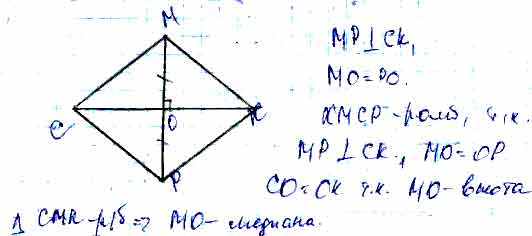 M
C
O
K
P
MP⊥CK,
MO=PO.
KMCP-ромб, т.к.
MP⊥CK, MO=OP
CO=CK т.к. MO-высота
Δ CMK-р/б => MO-медиана.